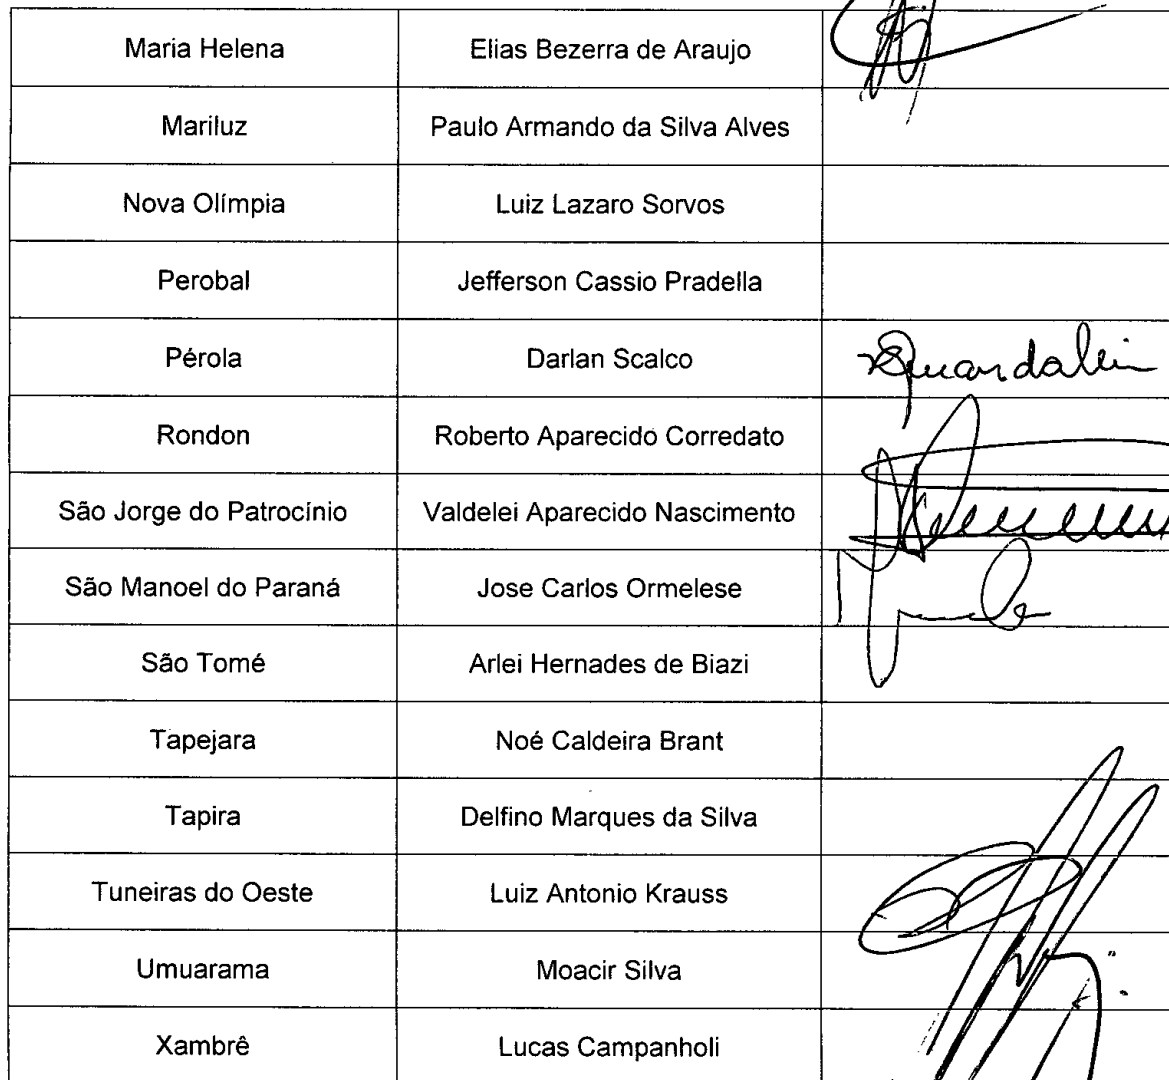 Maria Helena Elias Bezerra de Araujo
Mariluz Paulo Armando da Silva Alves
Nova Olímpia Luiz Lazaro Sorvos
Perobal Jefferson Cassio Pradella
Pérola Darlan Scalco
Rondon Roberto Aparecido Corredato
São Jorge do Patrocínio Valdelei Aparecido Nascimento
São Manoel do Paraná Jose Carlos Ormelese
São Tomé Arlei Hernades de Biazi
Tapejara Noé Caldeira Brant
Tapira Delfino Marques da Silva
Tuneiras do Oeste Luiz Antonio Krauss
Umuarama Moacir Silva
Xambrê Lucas Campanholi